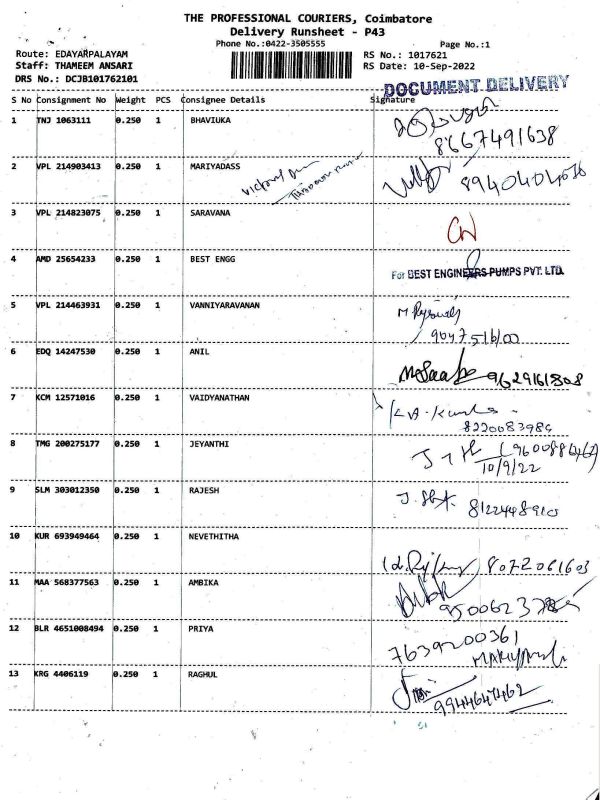 THE PROFESSIONAL COURIERS, Coimbatore
Delivery Runsheet - P43
Phone No.:0422-3505555 Page No.:1
Route: EDAYARPALAYAM RS No.: 1017621
Staff: THAMEEM ANSARI RS Date: 10-Sep-2022
DRS No.: DCJB101762101
DOCUMENT DELIVERY
S No Consignment No Weight PCS Consignee Details Signature
1 TNJ 1063111 0.250 1 BHAVIUKA
8667491638
2 VPL 214903413 0.250 1 MARIYADASS
3 VPL 214823075 0.250 1 SARAVANA
4 AMD 25654233 0.250 1 BEST ENGG For BEST ENGINEERS PUMPS PVT. LTD.
5 VPL 214463931 0.250 1 VANNIYARAVANAN
6 EDQ 14247530 0.250 1 ANIL
9629161808
7 KCM 12571016 0.250 1 VAIDYANATHAN
8220083984
8 TMG 200275177 0.250 1 JEYANTHI
10/9/22
9 SLM 303012350 0.250 1 RAJESH
8122448910
10 KUR 693949464 0.250 1 NEVETHITHA
8072061603
11 MAA 568377563 0.250 1 AMBIKA
12 BLR 4651008494 0.250 1 PRIYA
7639200361
13 KRG 4406119 0.250 1 RAGHUL
9944647462